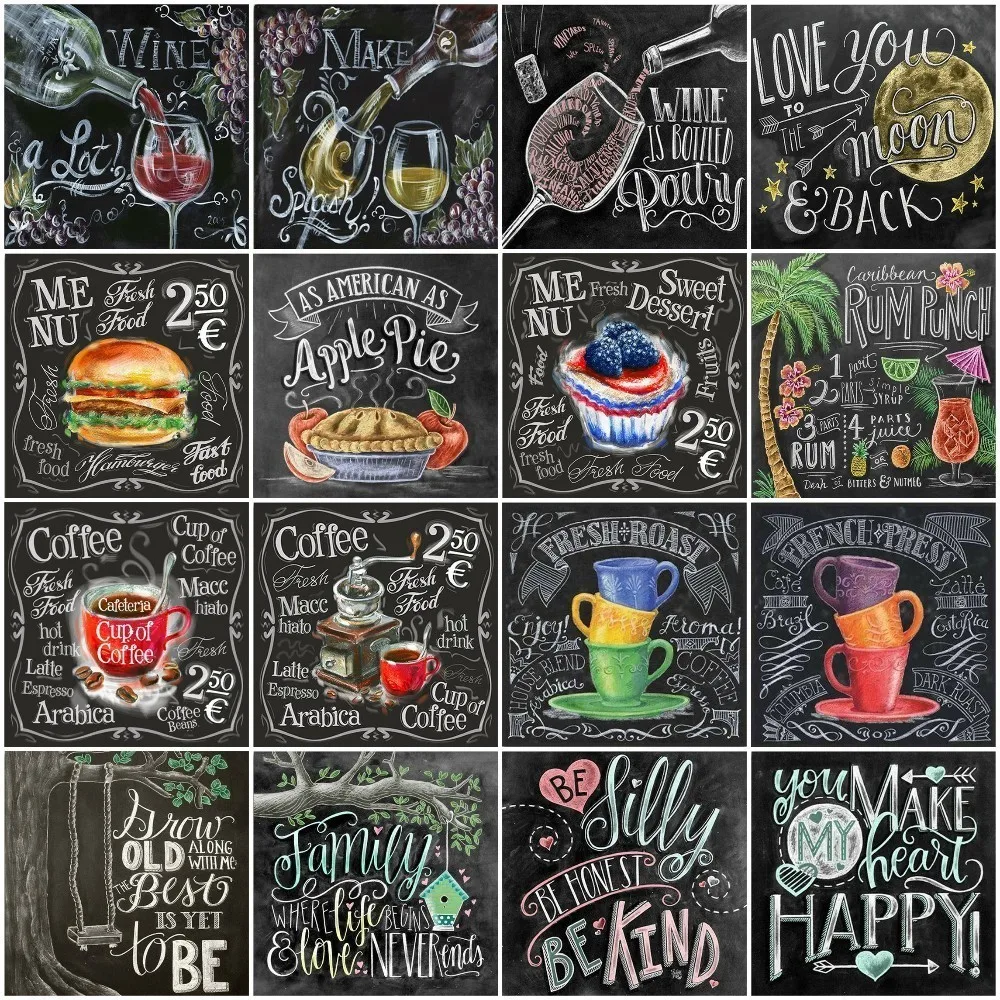 WINE
a Lot!
MAKE
Splash!
VINEYARDS
WINE
IS BOTTLED
Poetry
LOVE you
TO
THE
moon
& BACK
MENU
Fresh
Food
2.50
€
Fresh
Food
fresh
food
Hamburger
Fast
food
AS AMERICAN AS
Apple Pie
MENU
Fresh
Sweet
Dessert
Food
Fruits
Fresh
Food
fresh
food
Fresh Food
2.50
€
Caribbean
RUM PUNCH
1 part
2 PARTS simple
SYRUP
3 PARTS
RUM
4 PARTS
juice
OR
Dash OF BITTERS & NUTMEG
Coffee
Cup of
Coffee
Fresh
Food
Macc
hiato
hot
drink
Cafeteria
Cup of
Coffee
Fresh
Latte
Espresso
Arabica
2.50
€
Coffee
Beans
Coffee
2.50
€
Fresh
Fresh
Food
Macc
hiato
hot
drink
Latte
Espresso
Fresh
Arabica
Cup of
Coffee
FRESH ROAST
Enjoy!
Aroma!
HOUSE BLEND
COFFEE
Arabica
FRENCH PRESS
Café
Latté
Brazil
Costa Rica
COLUMBIA
DARK ROAST
Grow
OLD ALONG
WITH ME
THE Best
IS YET
to BE
Family
WHERE life BEGINS
& love NEVER ends
BE Silly
BE HONEST
BE KIND
you MAKE
MY heart
HAPPY!